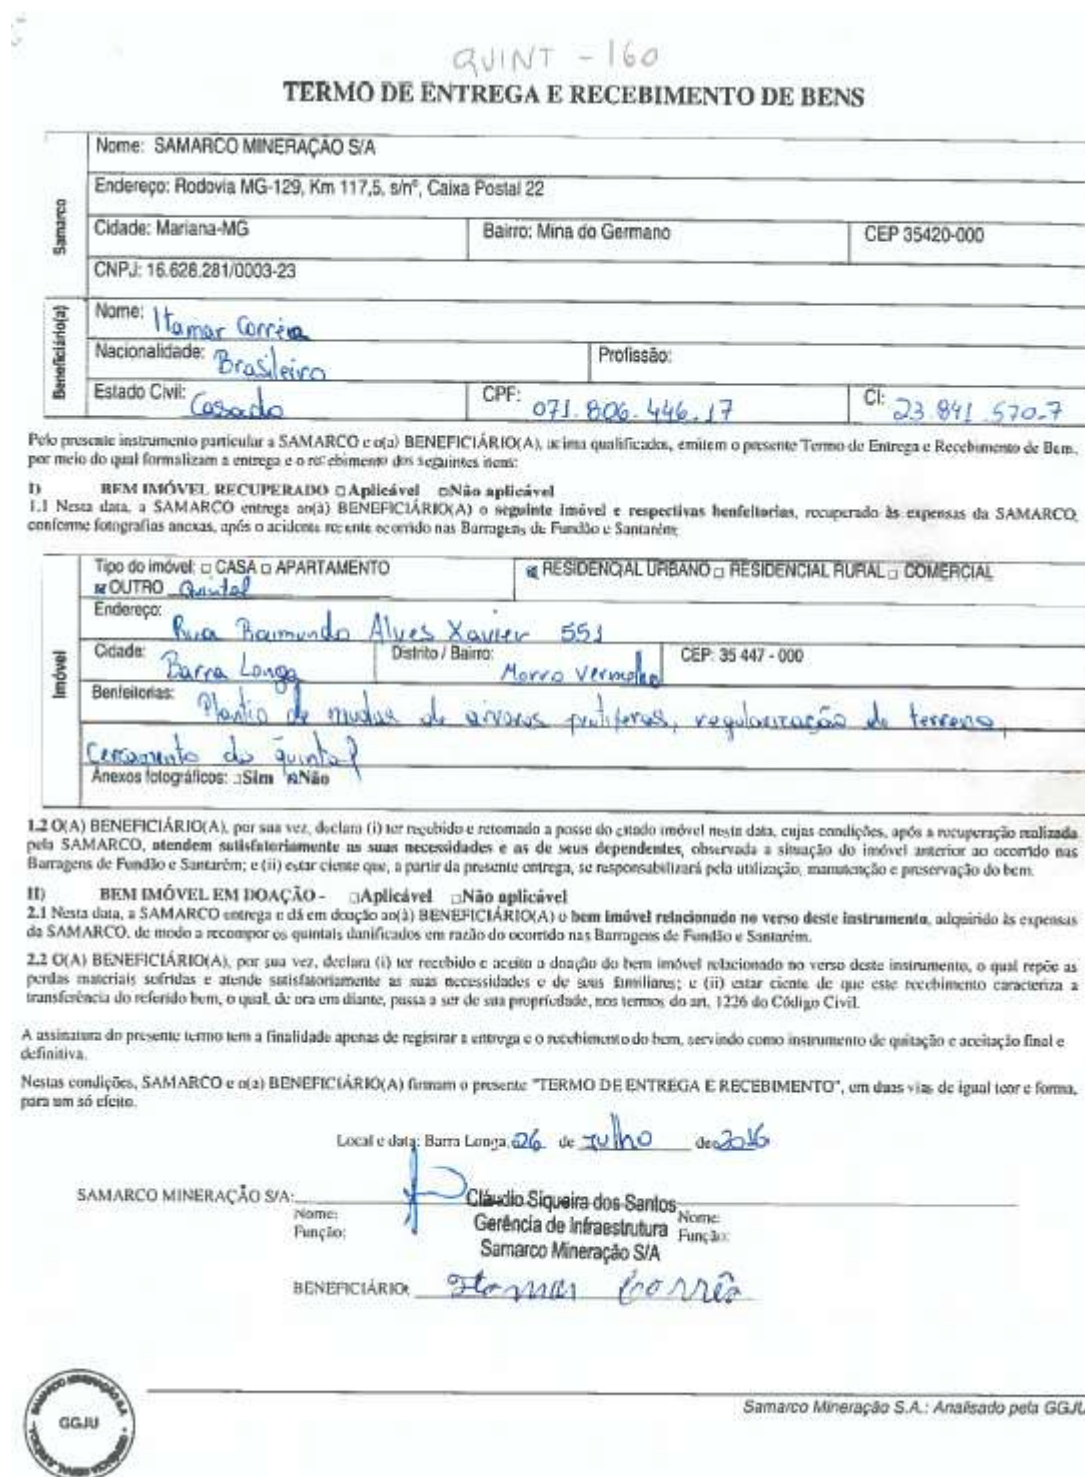 QUINT - 160
TERMO DE ENTREGA E RECEBIMENTO DE BENS
Samarco
Nome: SAMARCO MINERAÇÃO S/A
Endereço: Rodovia MG-129, Km 117,5, s/nº, Caixa Postal 22
Cidade: Mariana-MG Bairro: Mina do Germano CEP 35420-000
CNPJ: 16.628.281/0003-23
Beneficiário(a)
Nome: Itamar Corrêa
Nacionalidade: Brasileiro Profissão:
Estado Civil: Casado CPF: 071.806.446.17 CI: 23.841.570-7
Pelo presente instrumento particular a SAMARCO e o(a) BENEFICIÁRIO(A), acima qualificados, emitem o presente Termo de Entrega e Recebimento de Bem,
por meio do qual formalizam a entrega e o recebimento dos seguintes itens:
I) BEM IMÓVEL RECUPERADO □Aplicável □Não aplicável
1.1 Nesta data, a SAMARCO entrega ao(à) BENEFICIÁRIO(A) o seguinte imóvel e respectivas benfeitorias, recuperado às expensas da SAMARCO,
conforme fotografias anexas, após o acidente recente ocorrido nas Barragens de Fundão e Santarém;
Imóvel
Tipo do imóvel: □ CASA □ APARTAMENTO ☒ RESIDENCIAL URBANO □ RESIDENCIAL RURAL □ COMERCIAL
☒ OUTRO Quintal
Endereço: Rua Raimundo Alves Xavier 551
Cidade: Barra Longa Distrito / Bairro: Morro Vermelho CEP: 35 447 - 000
Benfeitorias: Plantio de mudas de arvores frutiferas, regularização do terreno,
Cercamento do quintal
Anexos fotográficos: □Sim ☒Não
1.2 O(A) BENEFICIÁRIO(A), por sua vez, declara (i) ter recebido e retomado a posse do citado imóvel nesta data, cujas condições, após a recuperação realizada
pela SAMARCO, atendem satisfatoriamente as suas necessidades e as de seus dependentes, observada a situação do imóvel anterior ao ocorrido nas
Barragens de Fundão e Santarém; e (ii) estar ciente que, a partir da presente entrega, se responsabilizará pela utilização, manutenção e preservação do bem.
II) BEM IMÓVEL EM DOAÇÃO - □Aplicável □Não aplicável
2.1 Nesta data, a SAMARCO entrega e dá em doação ao(à) BENEFICIÁRIO(A) o bem imóvel relacionado no verso deste instrumento, adquirido às expensas
da SAMARCO, de modo a recompor os quintais danificados em razão do ocorrido nas Barragens de Fundão e Santarém.
2.2 O(A) BENEFICIÁRIO(A), por sua vez, declara (i) ter recebido e aceito a doação do bem imóvel relacionado no verso deste instrumento, o qual repõe as
perdas materiais sofridas e atende satisfatoriamente as suas necessidades e de seus familiares; e (ii) estar ciente de que este recebimento caracteriza a
transferência do referido bem, o qual, de ora em diante, passa a ser de sua propriedade, nos termos do art. 1226 do Código Civil.
A assinatura do presente termo tem a finalidade apenas de registrar a entrega e o recebimento do bem, servindo como instrumento de quitação e aceitação final e
definitiva.
Nestas condições, SAMARCO e o(a) BENEFICIÁRIO(A) firmam o presente "TERMO DE ENTREGA E RECEBIMENTO", em duas vias de igual teor e forma,
para um só efeito.
Local e data: Barra Longa, 26 de Julho de 2016
SAMARCO MINERAÇÃO S/A: Cláudio Siqueira dos Santos
Nome: Gerência de Infraestrutura Nome:
Função: Samarco Mineração S/A Função:
BENEFICIÁRIO: Itamar Corrêa
GGJU
Samarco Mineração S.A.: Analisado pela GGJU